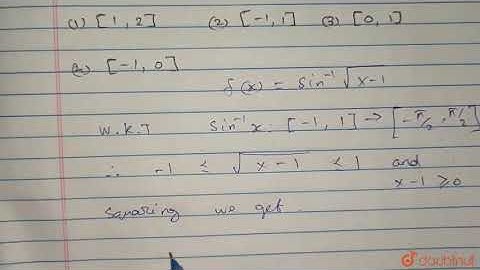 (1) [1, 2] (2) [-1, 1] (3) [0, 1]
(4) [-1, 0]
f(x) = Sin⁻¹ √x-1
W.K.T Sin⁻¹x : [-1, 1] → [-π/2, π/2]
∴ -1 ≤ √x-1 ≤ 1 and
x-1 ≥ 0
Squaring we get.
doubtnut